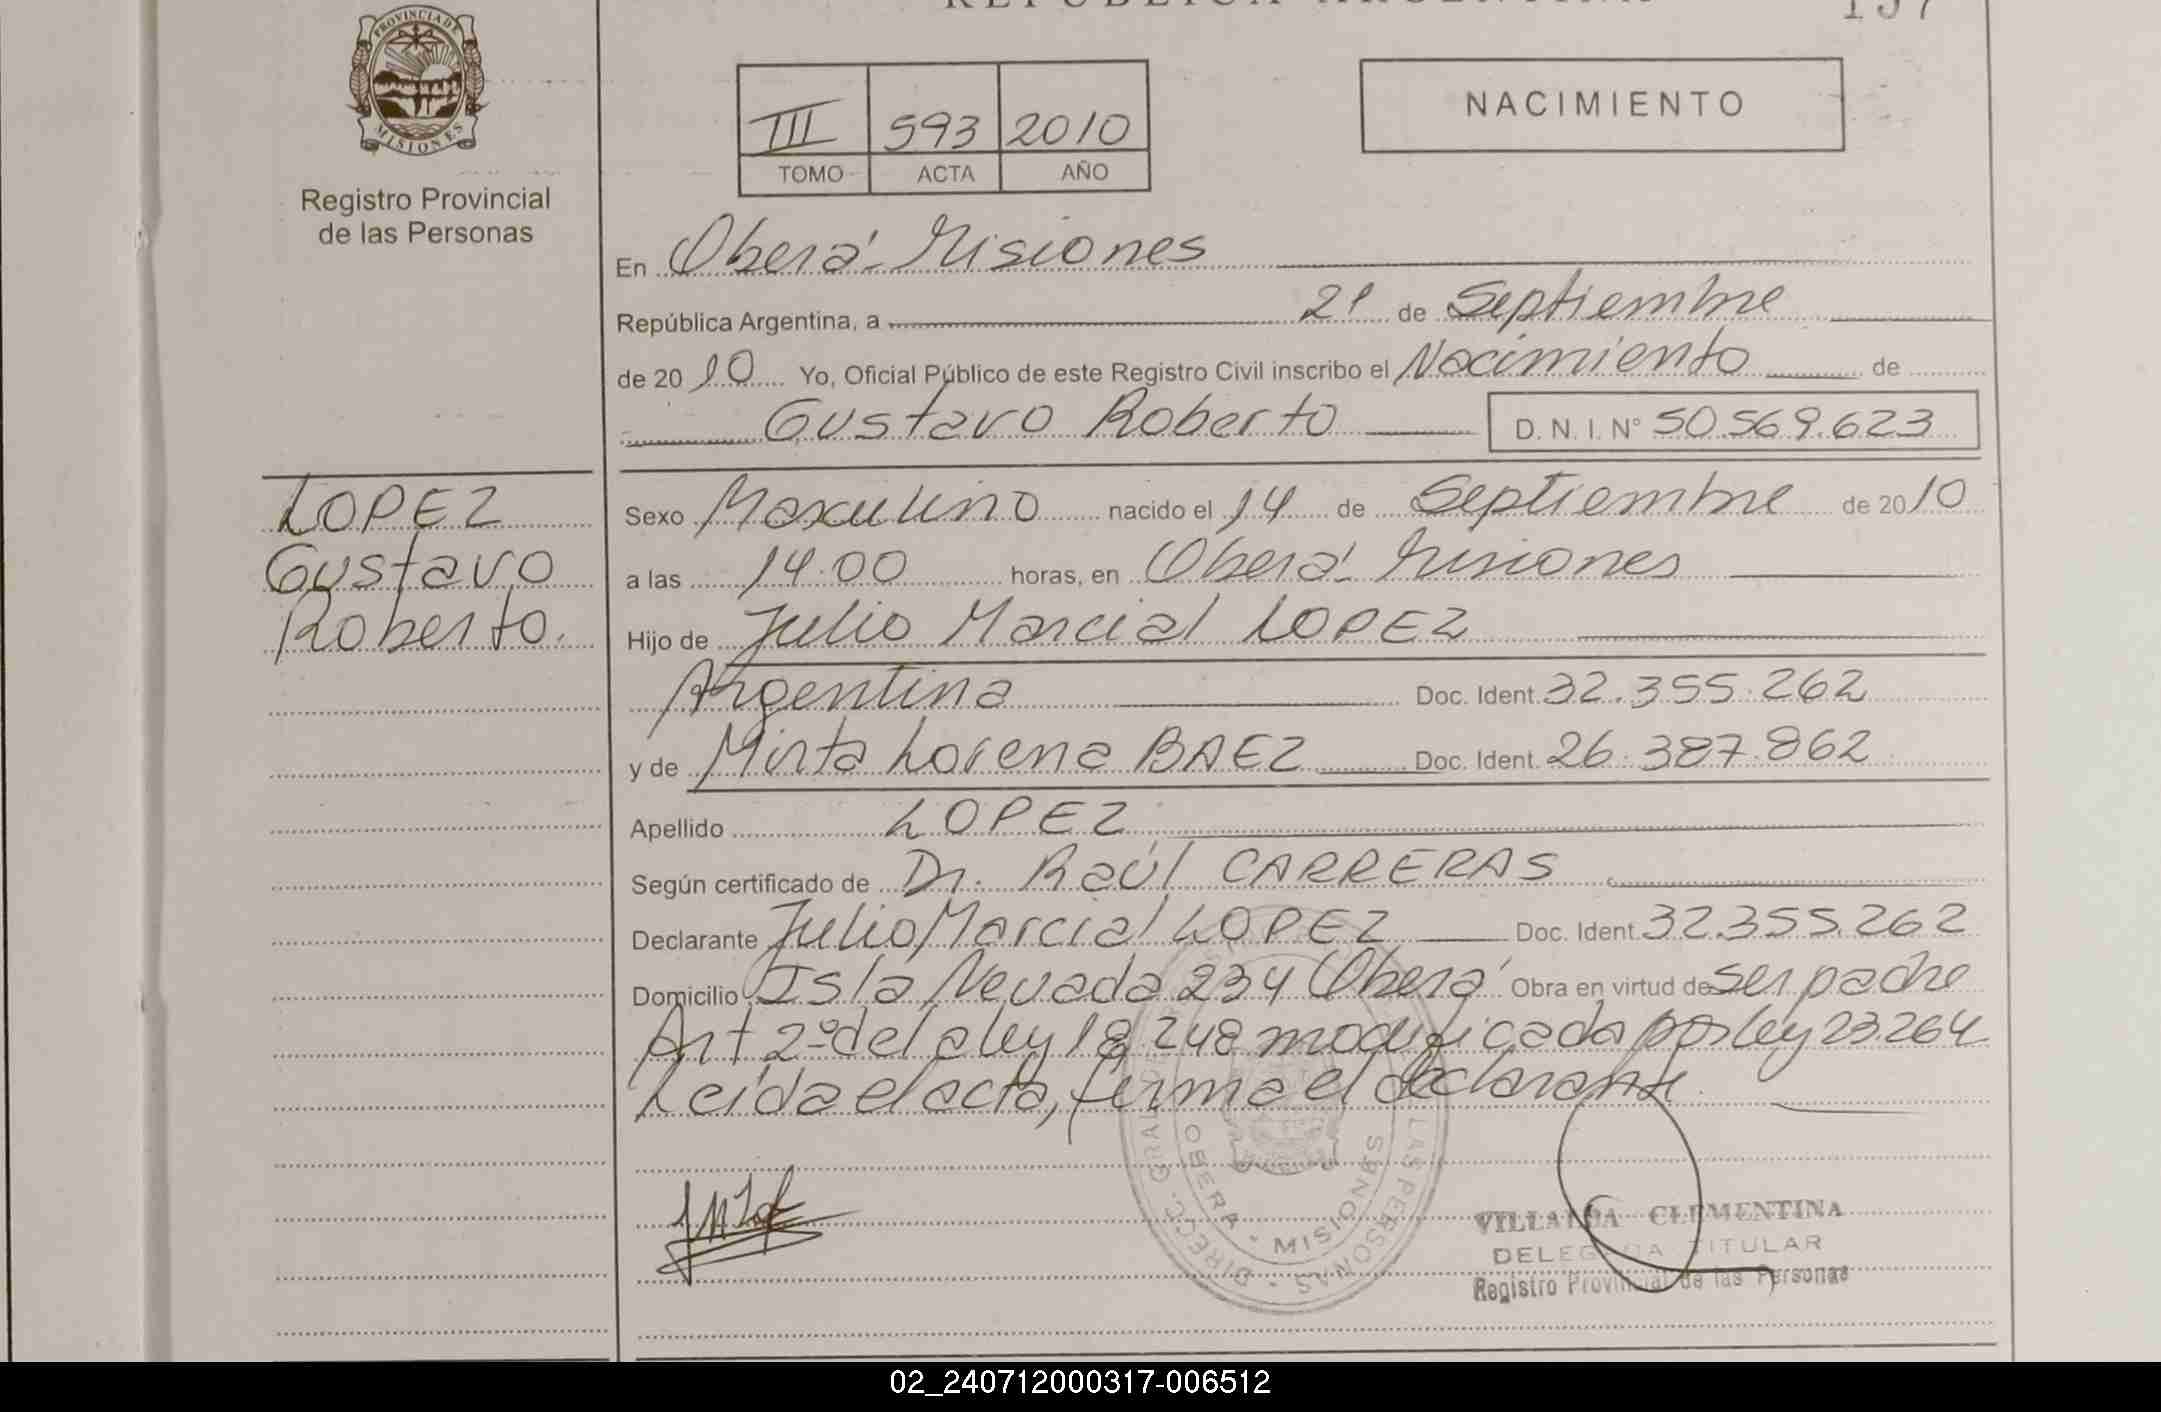 REPUBLICA ARGENTINA
157
PROVINCIA DE
MISIONES
Registro Provincial
de las Personas
III 593 2010
TOMO ACTA AÑO
NACIMIENTO
En Oberá - Misiones
República Argentina, a 21 de Septiembre
de 2010 Yo, Oficial Público de este Registro Civil inscribo el Nacimiento de
Gustavo Roberto D. N. I. N° 50.569.623
LOPEZ
Gustavo
Roberto.
Sexo Masculino nacido el 14 de Septiembre de 2010
a las 14.00 horas, en Oberá - Misiones
Hijo de Julio Marcial LOPEZ
Argentina Doc. Ident. 32.355.262
y de Mirta Lorena BAEZ Doc. Ident. 26.387.862
Apellido LOPEZ
Según certificado de Dr. Raúl CARRERAS
Declarante Julio Marcial LOPEZ Doc. Ident. 32.355.262
Domicilio Isla Nevada 234 Oberá Obra en virtud de ser padre
Art 2° de la ley 18.248 modificada por ley 23.264
Leída el acta, firma el declarante.
OBERA - MISIONES
LAS PERSONAS
VILLALBA CLEMENTINA
DELEGADA TITULAR
Registro Provincial de las Personas
02_240712000317-006512